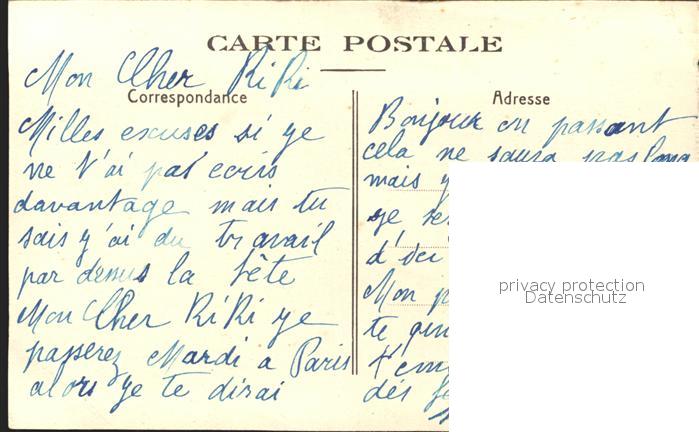 CARTE POSTALE
Mon Cher RiRi
Correspondance
Milles excuses si ye
ne t'ai pas ecris
davantage mais tu
sais y'ai du travail
par dessus la tête
Mon Cher RiRi ye
passerez Mardi a Paris
alors ye te dirai
Adresse
Bonjour en passant
cela ne saura pas long
mais y
ye
d'ici
Mon
te
dés
privacy protection
Datenschutz